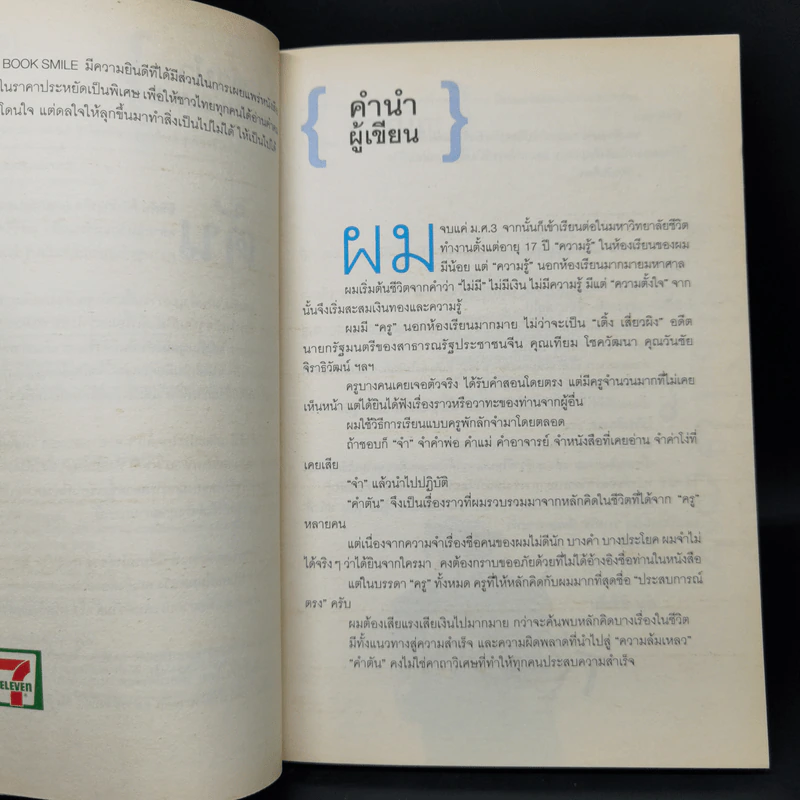 BOOK SMILE มีความยินดีที่ได้มีส่วนในการเผยแพร่หนังสือ
ในราคาประหยัดเป็นพิเศษ เพื่อให้ชาวไทยทุกคนได้อ่าน
โดนใจ แต่ดลใจให้ลุกขึ้นมาทำสิ่งเป็นไปไม่ได้ ให้เป็นไปได้
7
ELEVEN
{ คำนำ
ผู้เขียน }
ผม จบแค่ ม.ศ.3 จากนั้นก็เข้าเรียนต่อในมหาวิทยาลัยชีวิต
ทำงานตั้งแต่อายุ 17 ปี “ความรู้” ในห้องเรียนของผม
มีน้อย แต่ “ความรู้” นอกห้องเรียนมากมายมหาศาล
ผมเริ่มต้นชีวิตจากคำว่า “ไม่มี” ไม่มีเงิน ไม่มีความรู้ มีแต่ “ความตั้งใจ” จาก
นั้นจึงเริ่มสะสมเงินทองและความรู้
ผมมี “ครู” นอกห้องเรียนมากมาย ไม่ว่าจะเป็น “เติ้ง เสี่ยวผิง” อดีต
นายกรัฐมนตรีของสาธารณรัฐประชาชนจีน คุณเทียม โชควัฒนา คุณวันชัย
จิราธิวัฒน์ ฯลฯ
ครูบางคนเคยเจอตัวจริง ได้รับคำสอนโดยตรง แต่มีครูจำนวนมากที่ไม่เคย
เห็นหน้า แต่ได้ยินได้ฟังเรื่องราวหรือวาทะของท่านจากผู้อื่น
ผมใช้วิธีการเรียนแบบครูพักลักจำมาโดยตลอด
ถ้าชอบก็ “จำ” จำคำพ่อ คำแม่ คำอาจารย์ จำหนังสือที่เคยอ่าน จำค่าโง่ที่
เคยเสีย
“จำ” แล้วนำไปปฏิบัติ
“คำตัน” จึงเป็นเรื่องราวที่ผมรวบรวมมาจากหลักคิดในชีวิตที่ได้จาก “ครู”
หลายคน
แต่เนื่องจากความจำเรื่องชื่อคนของผมไม่ดีนัก บางคำ บางประโยค ผมจำไม่
ได้จริงๆ ว่าได้ยินจากใครมา คงต้องกราบขออภัยด้วยที่ไม่ได้อ้างอิงชื่อท่านในหนังสือ
แต่ในบรรดา “ครู” ทั้งหมด ครูที่ให้หลักคิดกับผมมากที่สุดชื่อ “ประสบการณ์
ตรง” ครับ
ผมต้องเสียแรงเสียเงินไปมากมาย กว่าจะค้นพบหลักคิดบางเรื่องในชีวิต
มีทั้งแนวทางสู่ความสำเร็จ และความผิดพลาดที่นำไปสู่ “ความล้มเหลว”
“คำตัน” คงไม่ใช่คาถาวิเศษที่ทำให้ทุกคนประสบความสำเร็จ